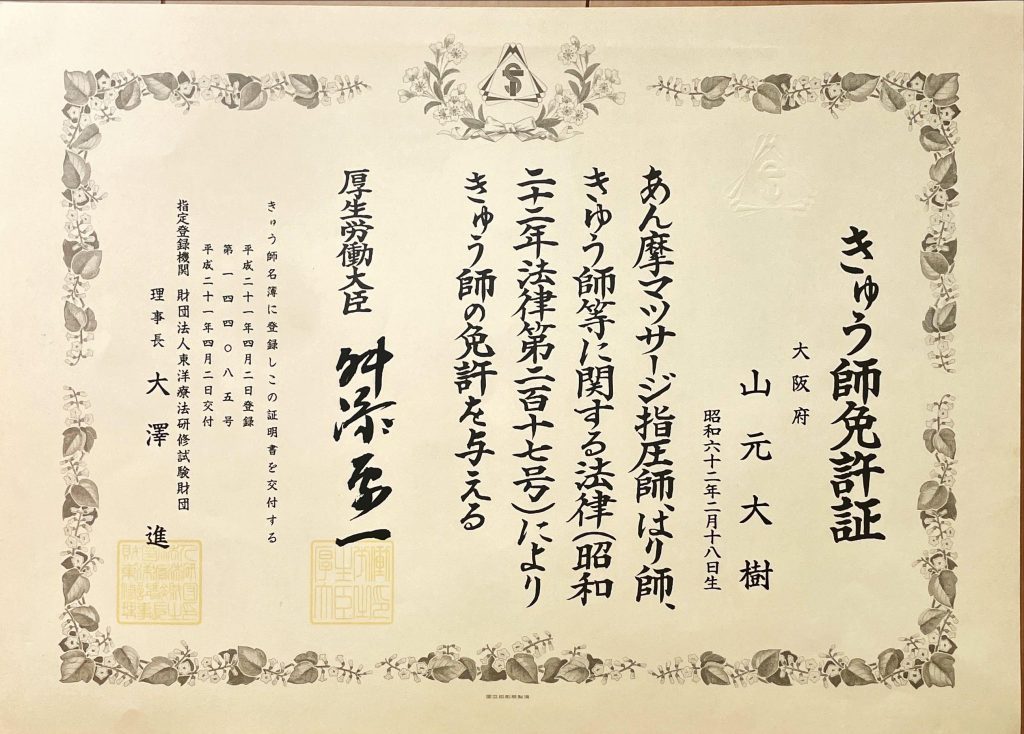 きゅう師免許証
大阪府
山元大樹
昭和六十二年二月十八日生
あん摩マツサージ指圧師、はり師、
きゆう師等に関する法律(昭和
二十二年法律第二百十七号)により
きゅう師の免許を与える
厚生労働大臣 舛添要一
きゅう師名簿に登録しこの証明書を交付する
平成二十一年四月二日登録
第一四四〇八五号
平成二十一年四月二日交付
指定登録機関 財団法人東洋療法研修試験財団
理事長 大澤 進